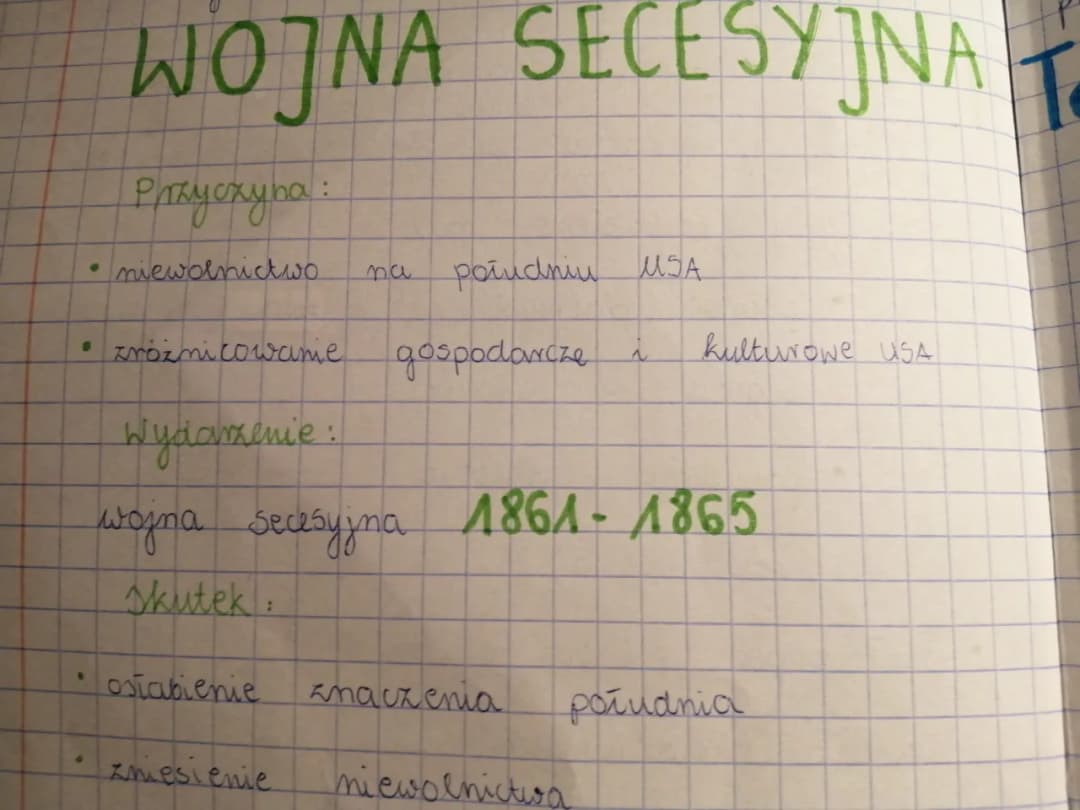 WOJNA SECESYJNA
Te
Przyczyna:
• niewolnictwo na południu USA
• zróżnicowanie gospodarcze i kulturowe USA
Wydarzenie:
wojna secesyjna 1861-1865
Skutek:
• osłabienie znaczenia południa
• zniesienie niewolnictwa